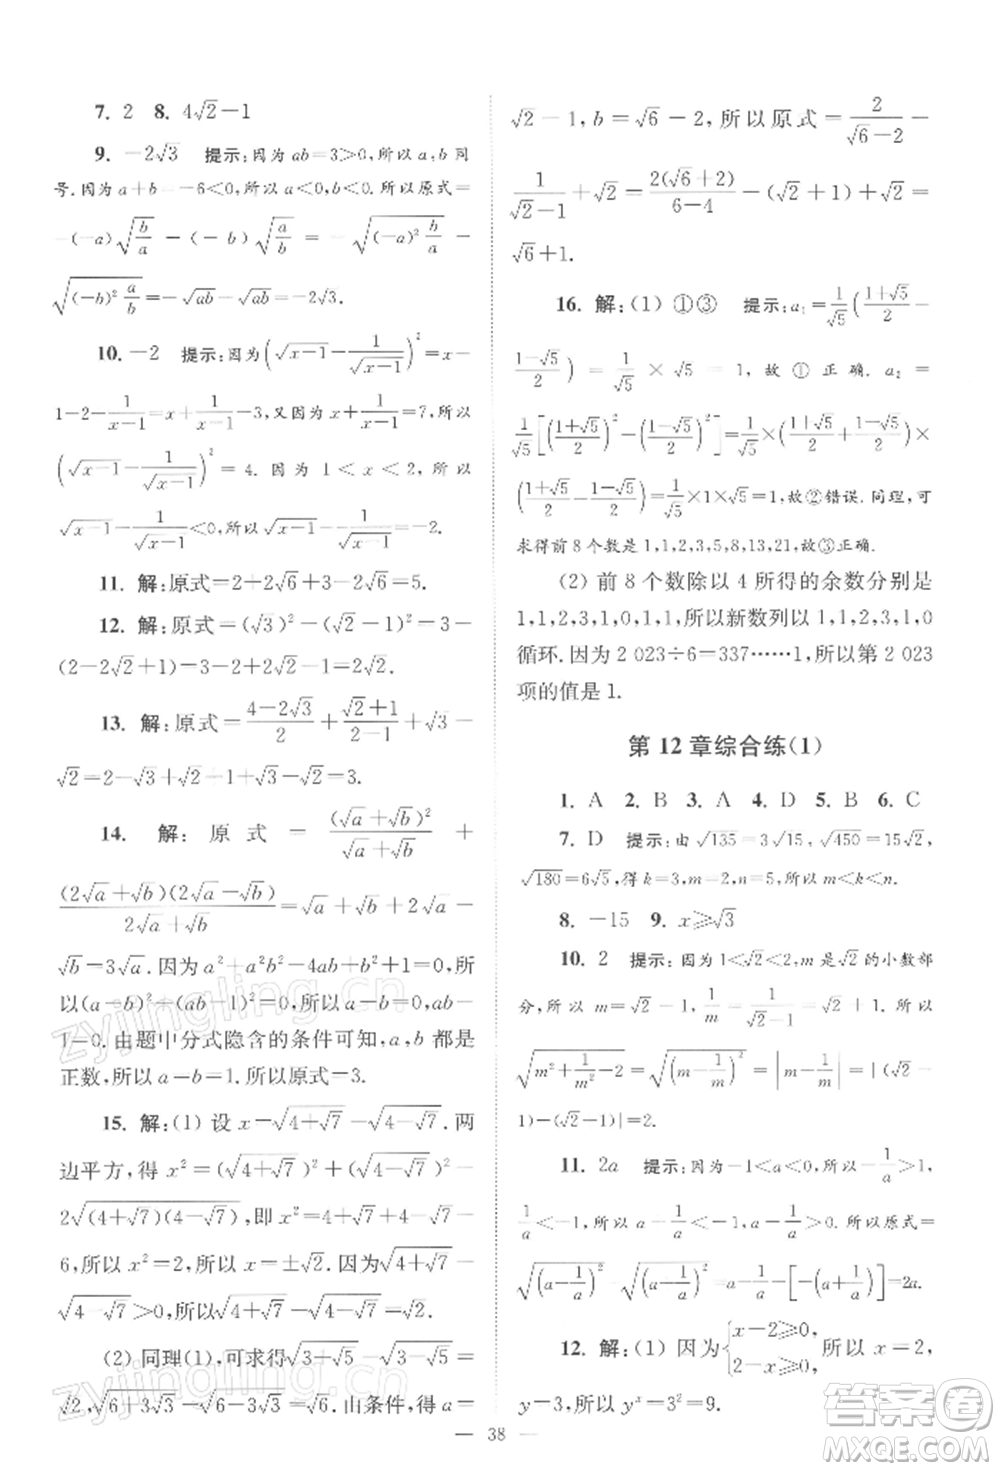 7. 2  8. 4√2−1
9. −2√3  提示:因为 ab=3>0,所以 a,b 同
号.因为 a+b=−6<0,所以 a<0,b<0.所以原式=
−(−a)√(b/a) − (−b)√(a/b) = −√((−a)² b/a) −
√((−b)² a/b) = −√ab−√ab=−2√3.
10. −2  提示:因为(√(x−1)−1/√(x−1))²=x−
1−2−1/(x−1)=x+1/(x−1)−3,又因为 x+1/(x−1)=7,所以
(√(x−1)−1/√(x−1))²=4. 因为 1<x<2,所以
√(x−1)−1/√(x−1)<0,所以√(x−1)−1/√(x−1)=−2.
11. 解:原式=2+2√6+3−2√6=5.
12. 解:原式=(√3)²−(√2−1)²=3−
(2−2√2+1)=3−2+2√2−1=2√2.
13. 解:原式=(4−2√3)/2+(√2+1)/(2−1)+√3−
√2=2−√3+√2+1+√3−√2=3.
14. 解:原式=(√a+√b)²/(√a+√b)+
(2√a+√b)(2√a−√b)/(2√a+√b)=√a+√b+2√a−
√b=3√a.因为 a²+b²−4ab+1=0,所
以(a−b)²+(ab−1)²=0,所以 ab−
1=0.由题中分式隐含的条件可知,a,b 都是
正数,所以 a=b=1.所以原式=3.
15. 解:(1) 设 x=√(4+√7)−√(4−√7).两
边平方,得 x²=(√(4+√7))²+(√(4−√7))²−
2√((4+√7)(4−√7)),即 x²=4+√7+4−√7−
6,所以 x²=2,所以 x=±√2.因为√(4+√7)−
√(4−√7)>0,所以√(4+√7)−√(4−√7)=√2.
(2) 同理(1),可求得√(3+√5)−√(3−√5)=
√2,√(6+3√3)−√(6−3√3)=√6.由条件,得 a=
√2−1,b=√6−2,所以原式=2/(√6−2)−
1/(√2−1)+√2=2(√6+2)/(6−4)−(√2+1)+√2=
√6+1.
16. 解:(1) ①③  提示:a₁=1/√5((1+√5)/2−
(1−√5)/2)=1/√5×√5=1,故①正确.a₂=
1/√5[((1+√5)/2)²−((1−√5)/2)²]=1/√5×((1+√5)/2+(1−√5)/2)×
((1+√5)/2−(1−√5)/2)=1/√5×1×√5=1,故②错误.同理,可
求得前 8 个数是 1,1,2,3,5,8,13,21,故③正确.
(2) 前 8 个数除以 4 所得的余数分别是
1,1,2,3,1,0,1,1,所以新数列以 1,1,2,3,1,0
循环.因为 2 023÷6=337……1,所以第 2 023
项的值是 1.
第 12 章综合练(1)
1. A  2. B  3. A  4. D  5. B  6. C
7. D  提示:由√135=3√15,√450=15√2,
√180=6√5,得 k=3,m=2,n=5,所以 m<k<n.
8. −15  9. x≥√3
10. 2  提示:因为 1<√2<2,m 是√2的小数部
分,所以 m=√2−1,1/m=1/(√2−1)=√2+1.所以
√(m²+1/m²−2)=√((m−1/m)²)=|m−1/m|=|(√2−
1)−(√2+1)|=2.
11. 2a  提示:因为−1<a<0,所以−1/a>1,
1/a<−1,所以 a+1/a<−1,a−1/a>0.所以原式=
√((a−1/a)²)−√((a+1/a)²)=a−1/a−[−(a+1/a)]=2a.
12. 解:(1) 因为{x−2≥0, 2−x≥0,所以 x=2,
y=3,所以 yˣ=3²=9.
38
zyjingling.cn
zyjingling.cn
答案圈
MXQE.COM